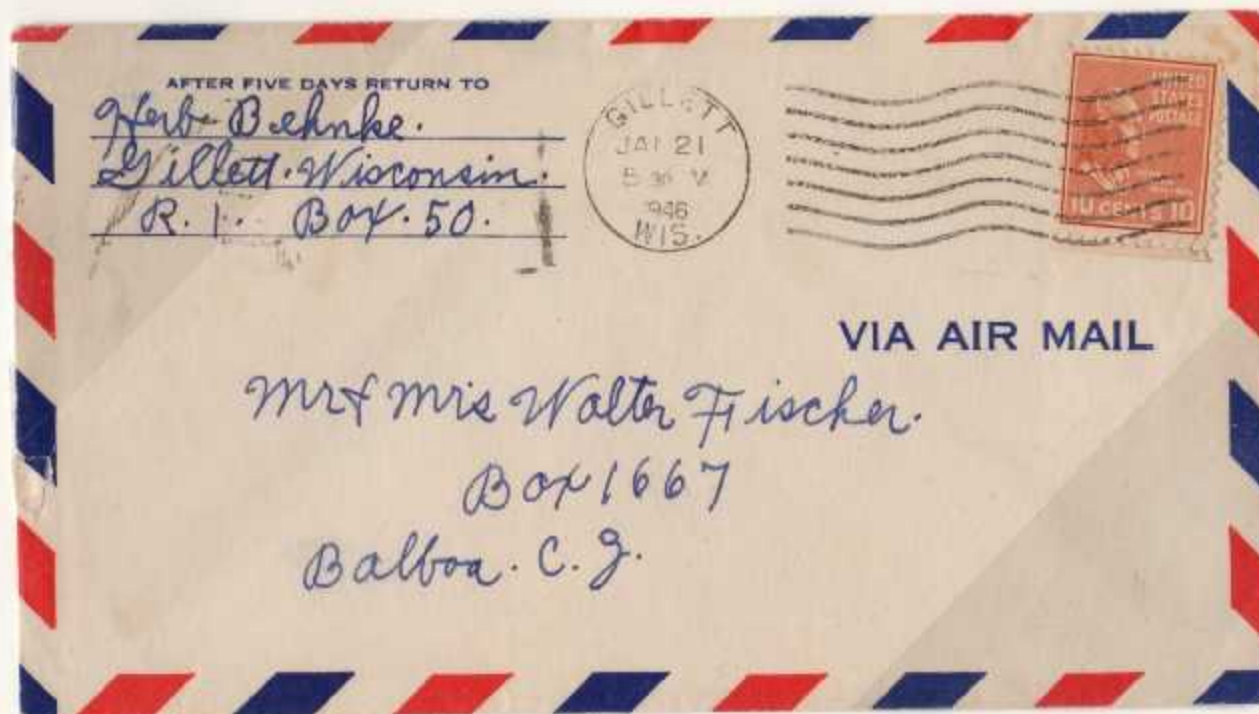 AFTER FIVE DAYS RETURN TO
Herb Behnke.
Gillett. Wisconsin.
R. 1. Box. 50.
GILLETT
JAN 21
5 30 PM
1946
WIS.
UNITED
STATES
POSTAGE
10 CENTS 10
VIA AIR MAIL
Mr & Mrs Walter Fischer.
Box 1667
Balboa. C. Z.